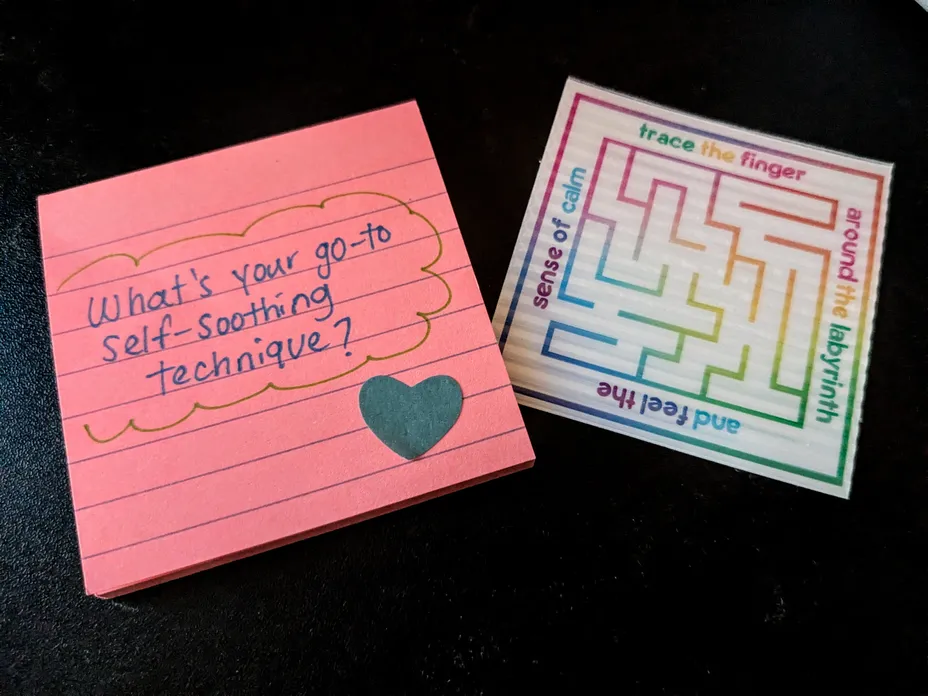 What's your go-to
self-soothing
technique?
trace the finger
around the labyrinth
and feel the
sense of calm